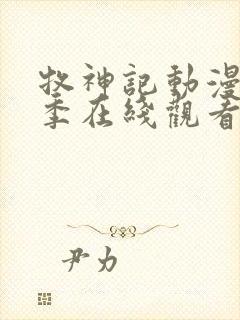 牧神記動漫
季在綫觀看
尹力